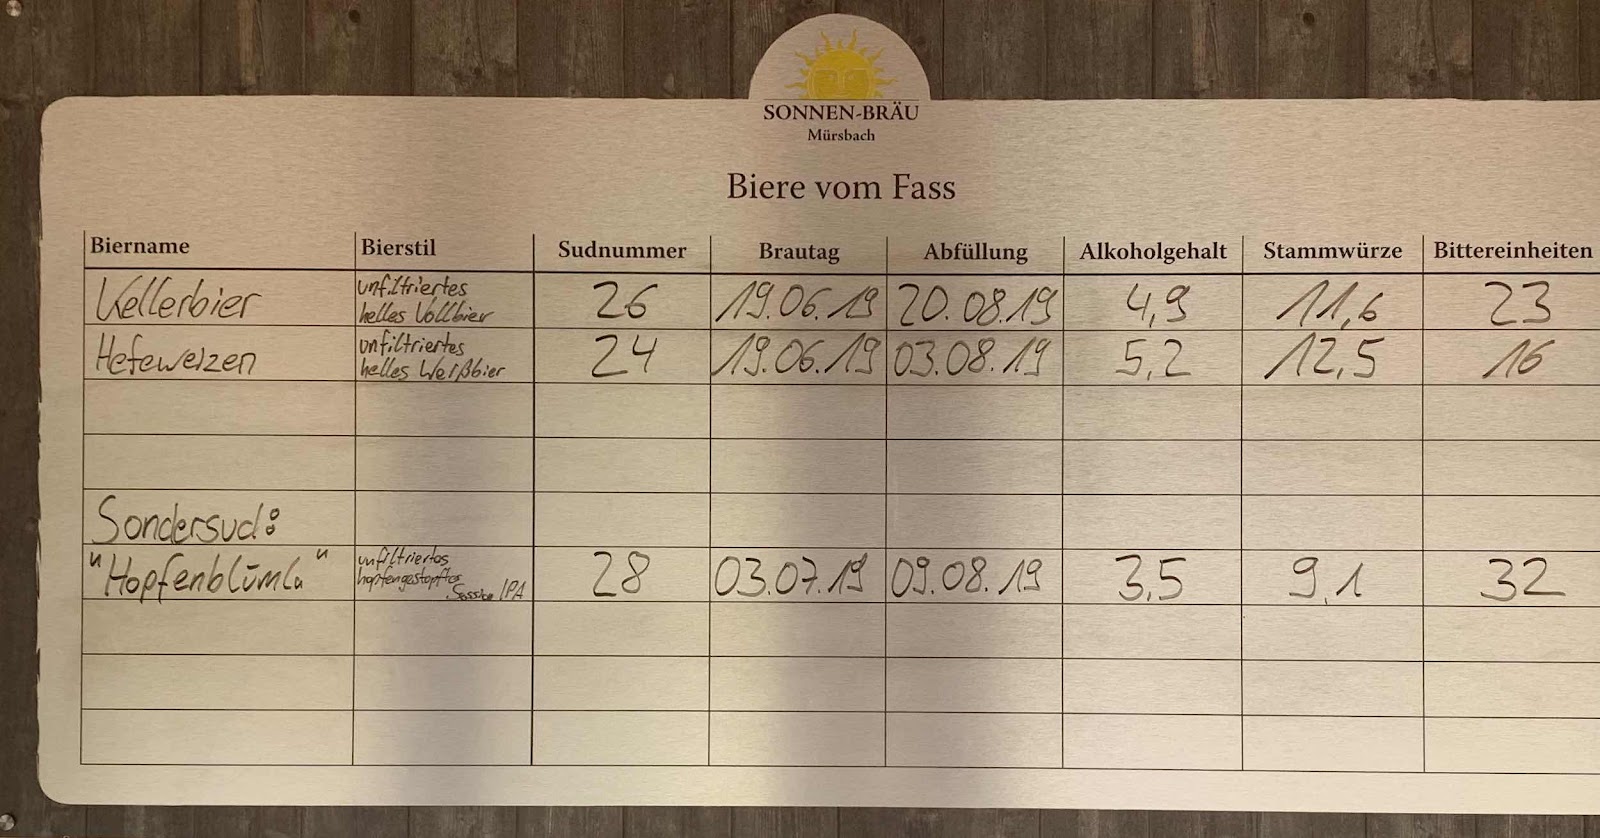 SONNEN-BRÄU
Mürsbach
Biere vom Fass
Biername Bierstil Sudnummer Brautag Abfüllung Alkoholgehalt Stammwürze Bittereinheiten
Kellerbier unfiltriertes helles Vollbier 26 19.06.19 20.08.19 4,9 11,6 23
Hefeweizen unfiltriertes helles Weißbier 24 19.06.19 03.08.19 5,2 12,5 16
Sondersud:
"Hopfenblümla" unfiltriertes hopfengestopftes Session IPA 28 03.07.19 09.08.19 3,5 9,1 32